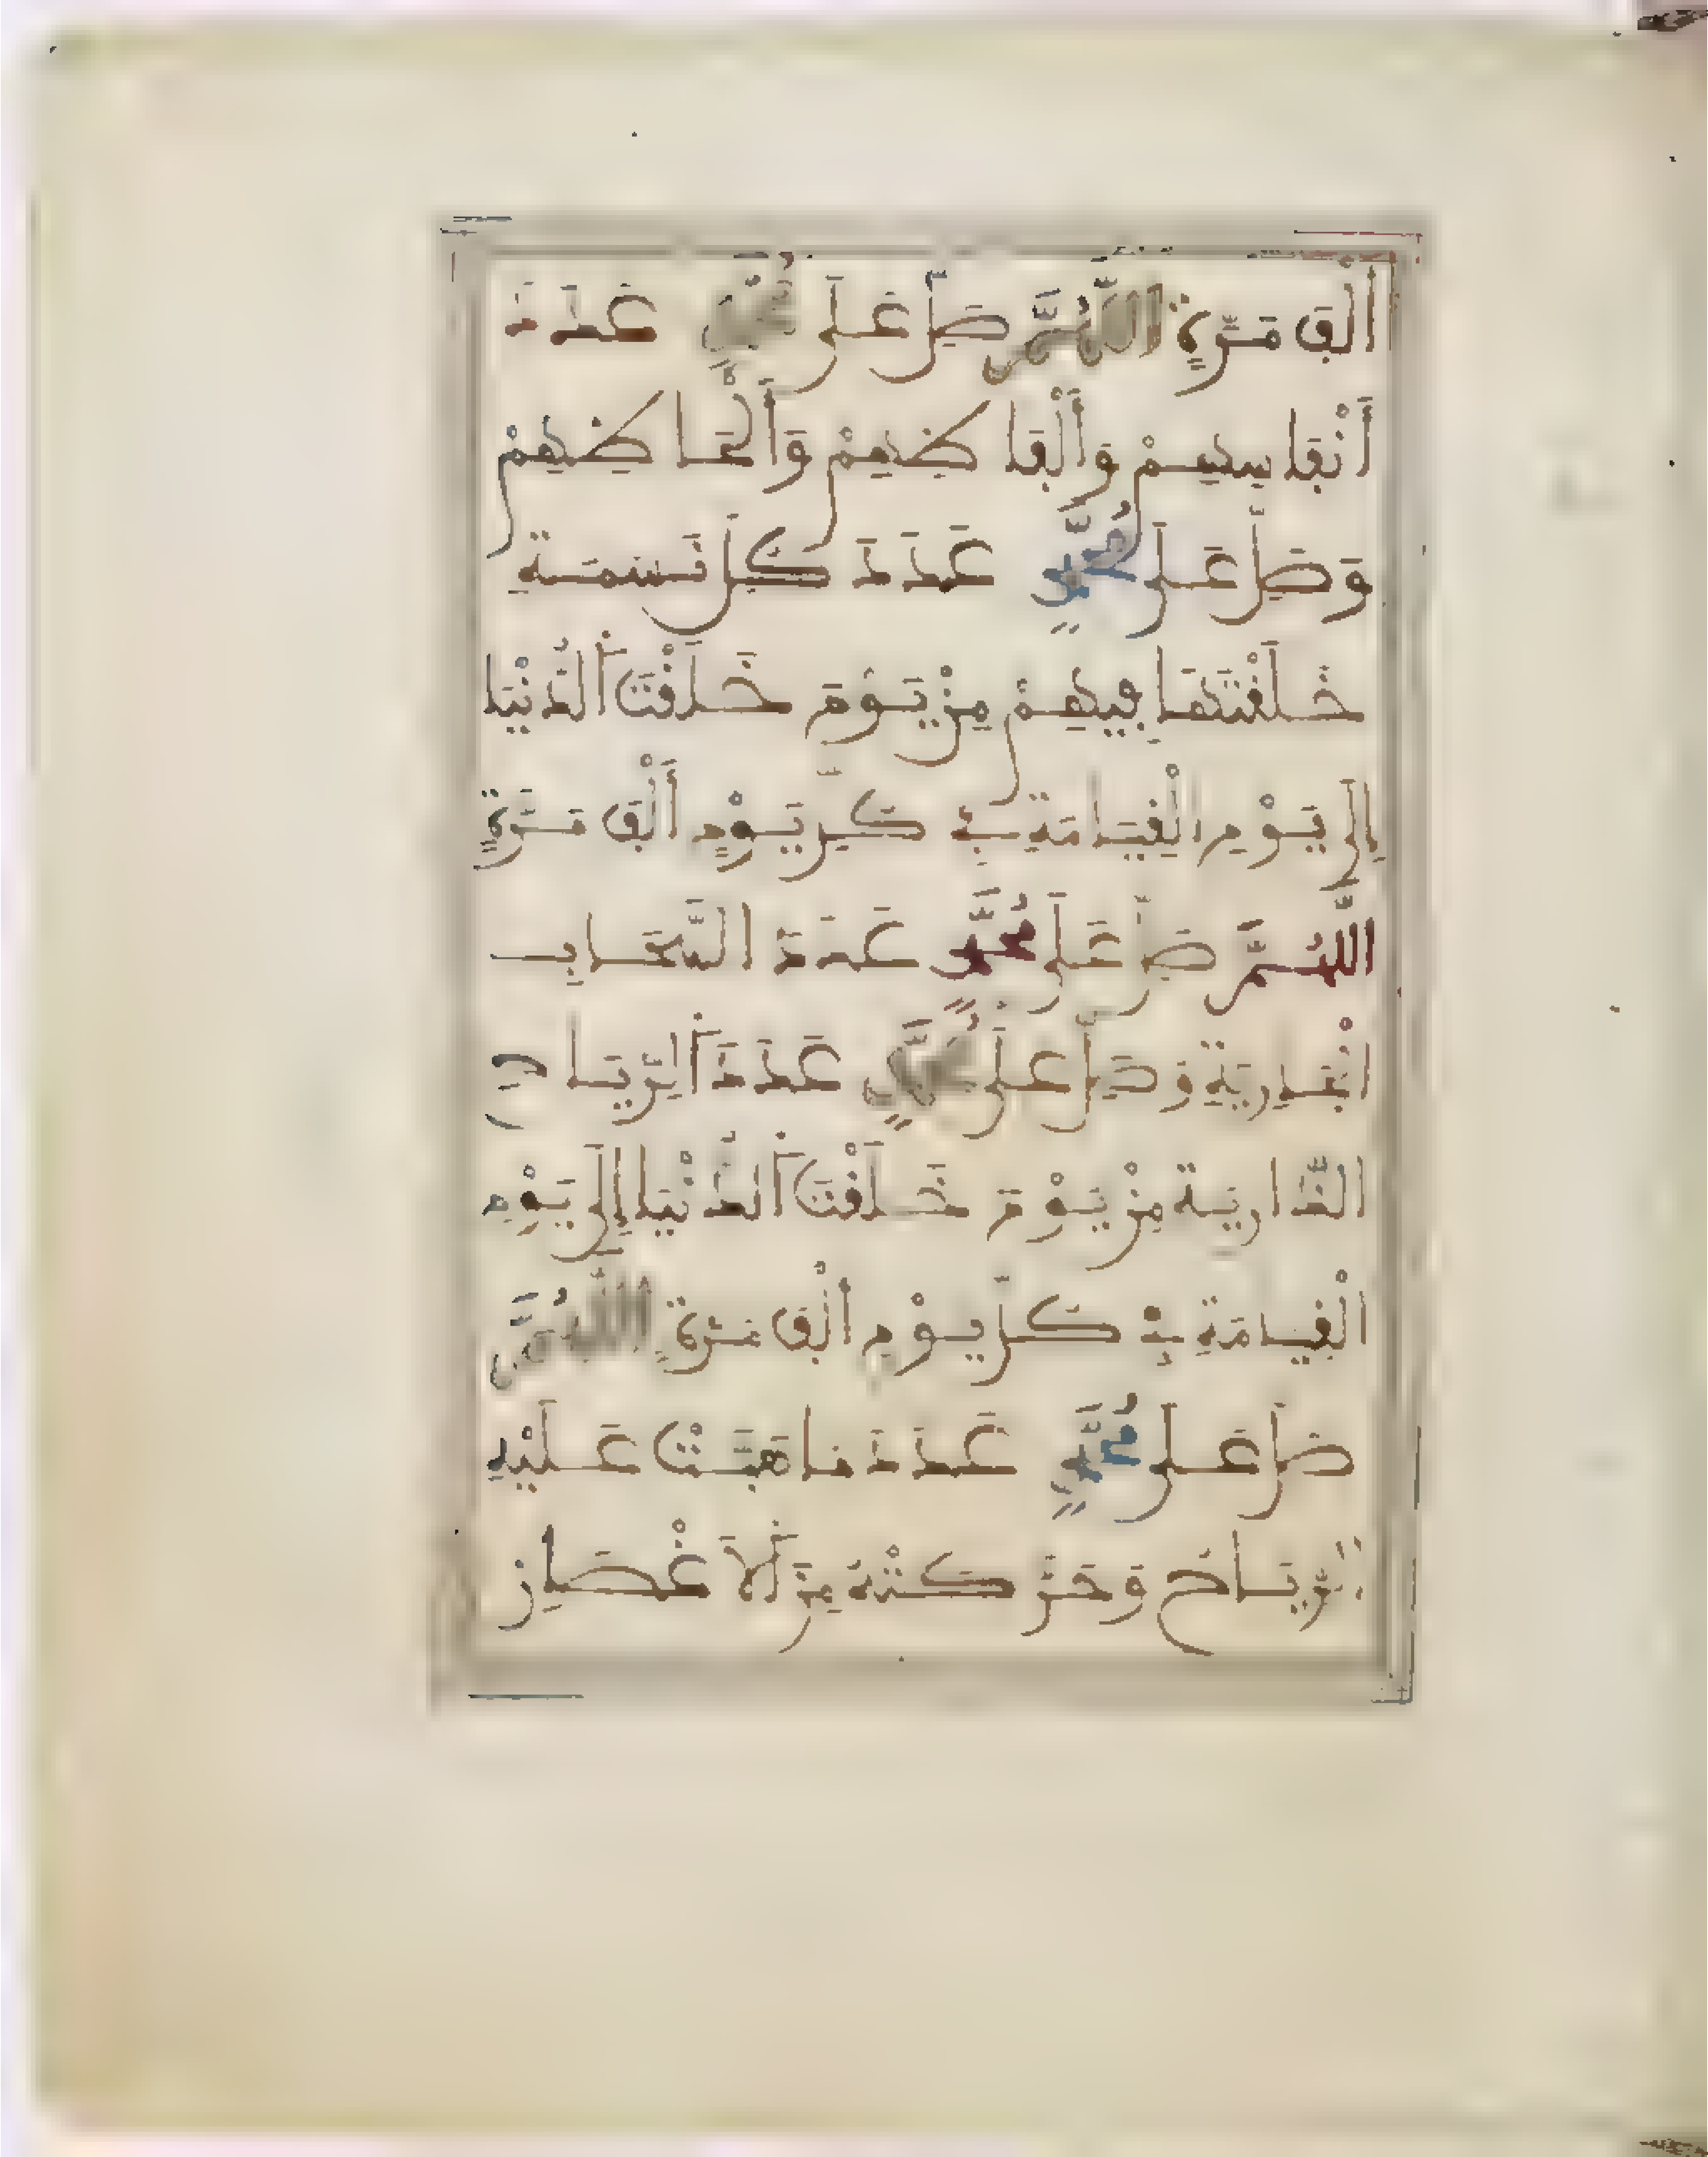 أَلْفَ مَرَّةٍ اللَّهُمَّ صَلِّ عَلَى مُحَمَّدٍ عَدَدَ
أَنْفَاسِهِمْ وَأَلْفَاظِهِمْ وَأَلْحَاظِهِمْ
وَصَلِّ عَلَى مُحَمَّدٍ عَدَدَ كُلِّ نَسَمَةٍ
خَلَقْتَهَا فِيهِمْ مِنْ يَوْمَ خَلَقْتَ الدُّنْيَا
إِلَى يَوْمِ الْقِيَامَةِ فِي كُلِّ يَوْمٍ أَلْفَ مَرَّةٍ
اللَّهُمَّ صَلِّ عَلَى مُحَمَّدٍ عَدَدَ السَّحَابِ
الْجَارِيَةِ وَصَلِّ عَلَى مُحَمَّدٍ عَدَدَ الرِّيَاحِ
الذَّارِيَةِ مِنْ يَوْمَ خَلَقْتَ الدُّنْيَا إِلَى يَوْمِ
الْقِيَامَةِ فِي كُلِّ يَوْمٍ أَلْفَ مَرَّةٍ اللَّهُمَّ
صَلِّ عَلَى مُحَمَّدٍ عَدَدَ مَا هَبَّتْ عَلَيْهِ
الرِّيَاحُ وَحَرَّكَتْهُ مِنَ الْأَغْصَانِ